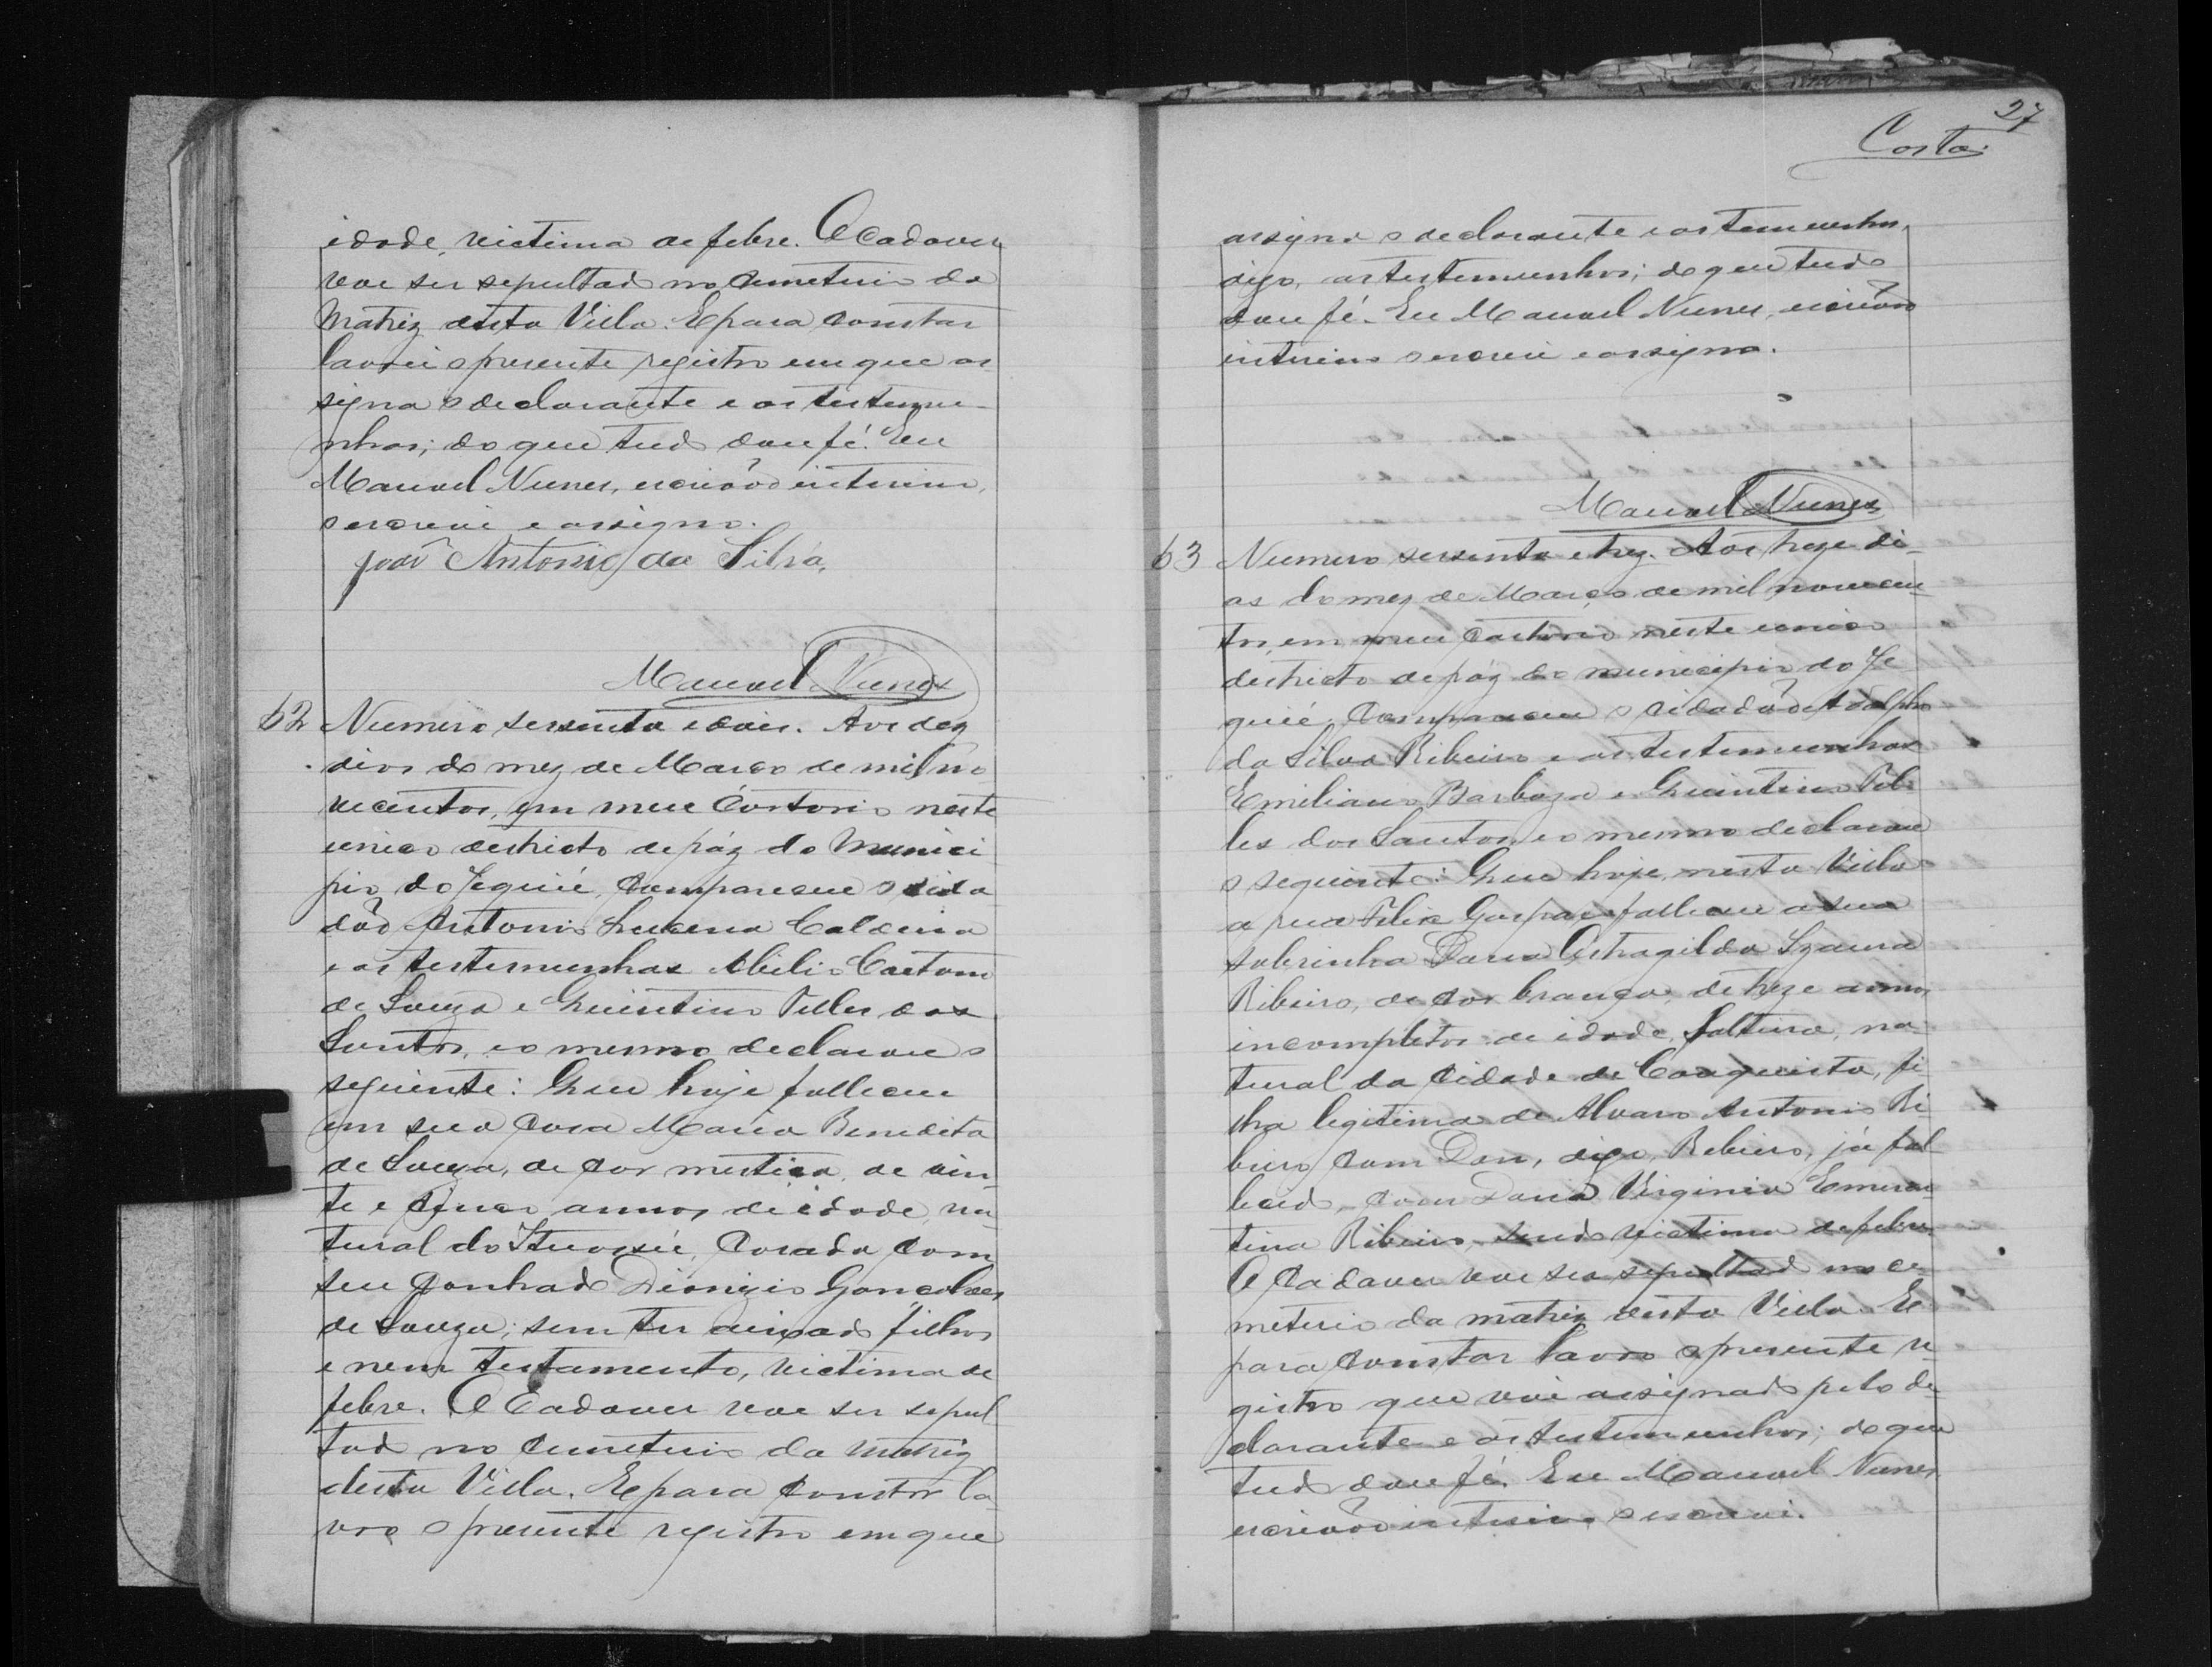 idade, victima de febre. O cadaver
vae ser sepultado no Cemeterio da
Matriz desta Villa. E para constar
lavrei o presente registro em que as
signa o declarante e as testemu-
nhas; do que tudo dou fé. Eu
Manoel Nunes, escrivão interino,
o escrevi e assigno.
João Antonio da Silva,
Manoel Nunes
62 Numero sessenta e dois. Aos dez
dias do mez de Março de mil no
vecentos, em meu Cartorio neste
unico destricto de páz do Munici
pio do Jequié, compareceu o cida
dão Antonio Lucena Caldeira
e as testemunhas Abilio Caetano
de Souza e Quintino Telles dos
Santos, e o mesmo declarou o
seguinte: Que hoje falleceu
em sua casa Maria Benedita
de Souza, de cor mestiça, de vin
te e cinco annos de idade, na
tural do Ituassú, casada com
seu cunhado Dionizio Gonçalves
de Souza; sem ter deixado filhos
e nem testamento, victima de
febre. O Cadaver vae ser sepul
tado no Cemeterio da Matriz
desta Villa. E para constar la
vro o presente registro em que
27
Costa.
assigna o declarante e as temunhas,
digo, as testemunhas; do que tudo
dou fé. Eu Manoel Nunes, escrivão
interino o escrevi e assigno.
Manoel Nunes
63 Numero sessenta e trez. Aos treze di-
as do mez de Março de mil novecen
tos, em meu Cartorio neste unico
destricto de páz do municipio do Je
quié, compareceu o cidadão Adolpho
da Silva Ribeiro e as testemunhas
Emiliano Barboza e Quintino Tel
les dos Santos, e o mesmo declarou
o seguinte: Que hoje, nesta Villa
a rua Felix Gaspar falleceu a sua
sobrinha Dona Astragilda Izaura
Ribeiro, de cor branca, de treze annos
incompletos de idade, solteira, na
tural da Cidade de Conquista, fi
lha legitima de Alvaro Antonio Ri
beiro com Don, digo, Ribeiro, já fal
lecido, com Dona Virginia Emeren
tina Ribeiro, sendo victima de febre.
O Cadaver vae ser sepultado no ce-
meterio da matriz desta Villa. E
para constar lavro o presente re
gistro que vai assignado pelo de
clarante e as testemunhas; do que
tudo dou fé. Eu Manoel Nunes,
escrivão interino o escrevi.